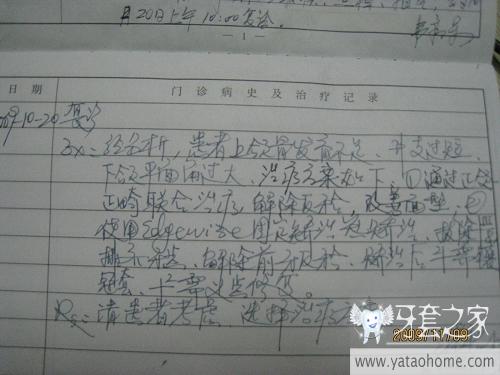 月20日上午10:00复诊
— 1 —
日期 门诊病史及治疗记录
09-10-20 复诊
经分析，患者上颌骨发育不足、升支过短、
下颌平面角过大、治疗方案如下、①通过正颌
正畸联合治疗，解除反𬌗，改善面型、②
使用Edgewise固定矫治器矫治、
排齐牙齿、解除前牙反𬌗、矫治后
冠套、
Rs: 请患者考虑、选择治疗方案
牙套之家
2009/11/09
www.yataohome.com